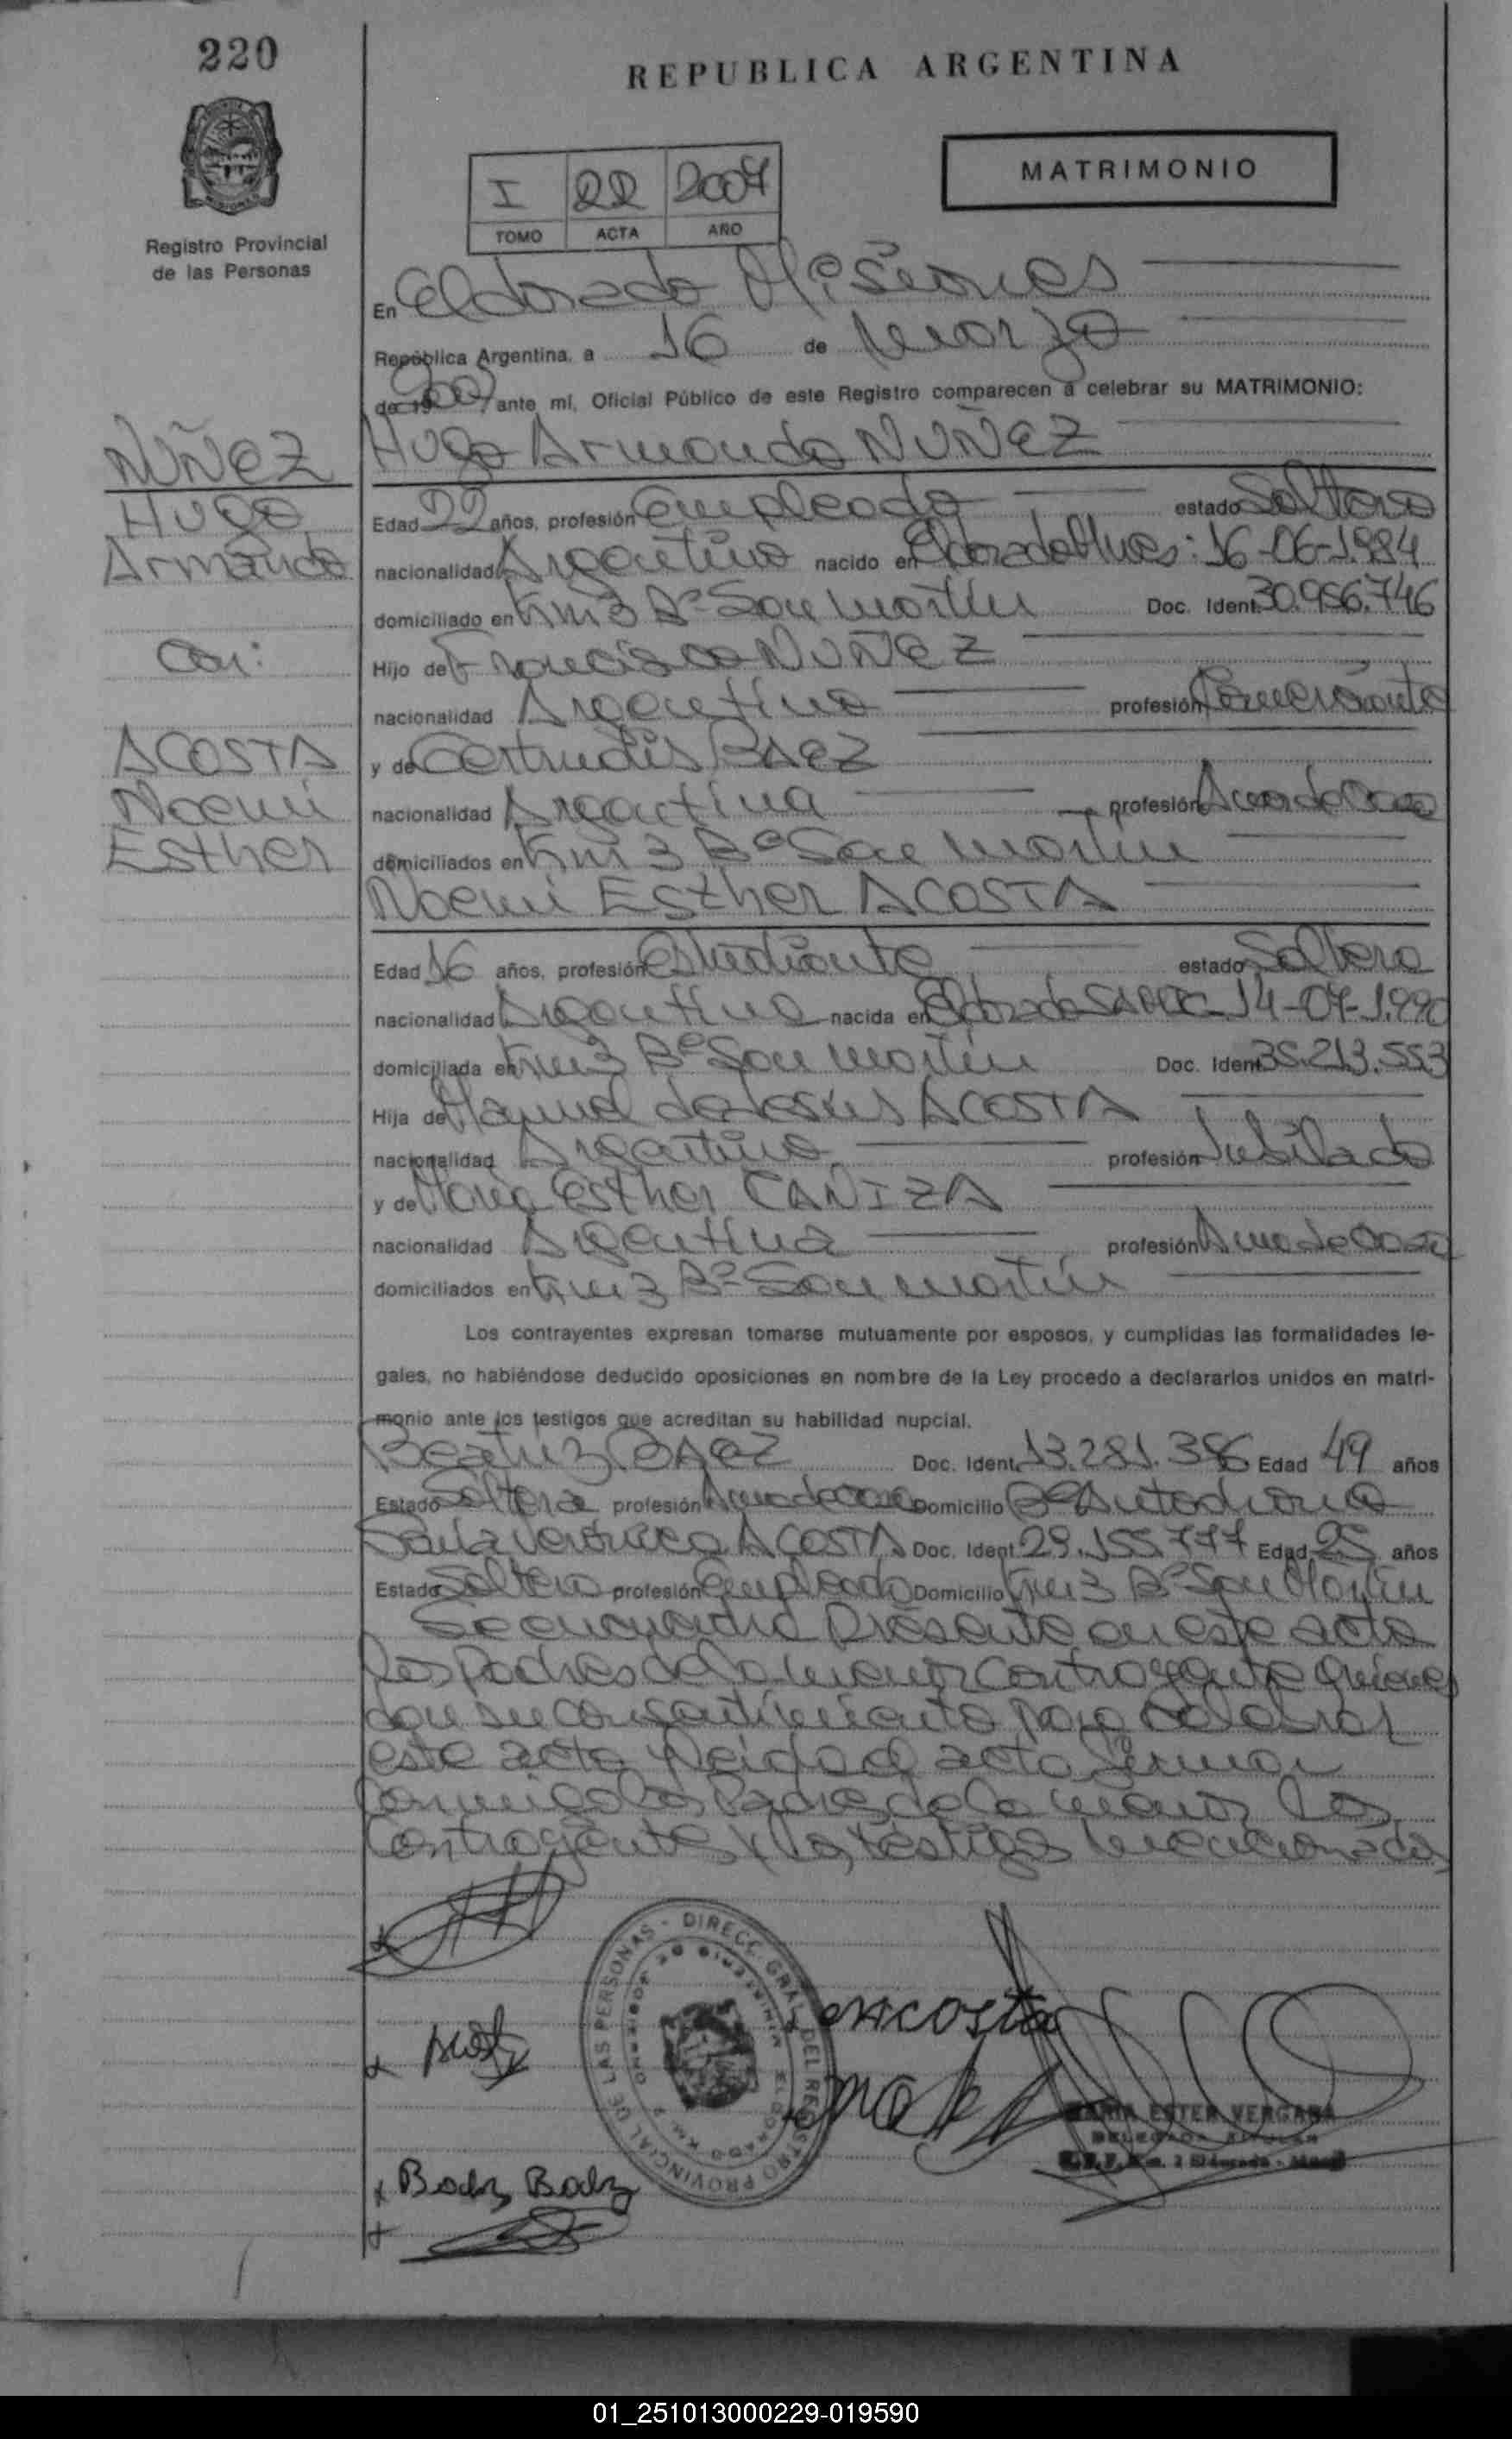 220
REPUBLICA ARGENTINA
MATRIMONIO
I 22 2007
TOMO ACTA AÑO
Registro Provincial
de las Personas
En Eldorado Misiones
República Argentina, a 16 de Marzo
de 19 2007 ante mí, Oficial Público de este Registro comparecen a celebrar su MATRIMONIO:
NUÑEZ
Hugo
Armando
Con:
ACOSTA
Noemi
Esther
Hugo Armando NUÑEZ
Edad 22 años, profesión Empleado estado Soltero
nacionalidad Argentino nacido en Eldorado Mnes: 16-06-1.984
domiciliado en Km 3 Bº San Martín Doc. Ident. 30.956.746
Hijo de Francisco NUÑEZ
nacionalidad Argentino profesión Comerciante
y de Gertrudis BAEZ
nacionalidad Argentina profesión Ama de Casa
domiciliados en Km 3 Bº San Martín
Noemi Esther ACOSTA
Edad 16 años, profesión Estudiante estado Soltera
nacionalidad Argentina nacida en Eldorado 14-07-1.990
domiciliada en Km 3 Bº San Martín Doc. Ident. 35.213.553
Hija de Manuel de Jesús ACOSTA
nacionalidad Argentino profesión Jubilado
y de María Esther CANIZA
nacionalidad Argentina profesión Ama de Casa
domiciliados en Km 3 Bº San Martín
Los contrayentes expresan tomarse mutuamente por esposos, y cumplidas las formalidades le-
gales, no habiéndose deducido oposiciones en nombre de la Ley procedo a declararlos unidos en matri-
monio ante los testigos que acreditan su habilidad nupcial.
Beatriz BAEZ Doc. Ident. 13.281.386 Edad 49 años
Estado Soltera profesión Ama de casa Domicilio Bº
Verónica ACOSTA Doc. Ident. 29.155.777 Edad 25 años
Estado Soltera profesión Empleada Domicilio Km 3 Bº San Martín
Se encuentra presente en este acto
los Padres de la menor contrayente quienes
dan su consentimiento para celebrar
este acto leida el acta firman
Conmigo los Padres de la menor los
Contrayentes y los testigos mencionados
DIRECC. GRAL. DEL REGISTRO PROVINCIAL DE LAS PERSONAS
MINISTERIO DE GOBIERNO
ELDORADO KM. 2
Acosta
Baez Baez
MARIA ESTER VERGARA
DELEGADA TITULAR
01_251013000229-019590